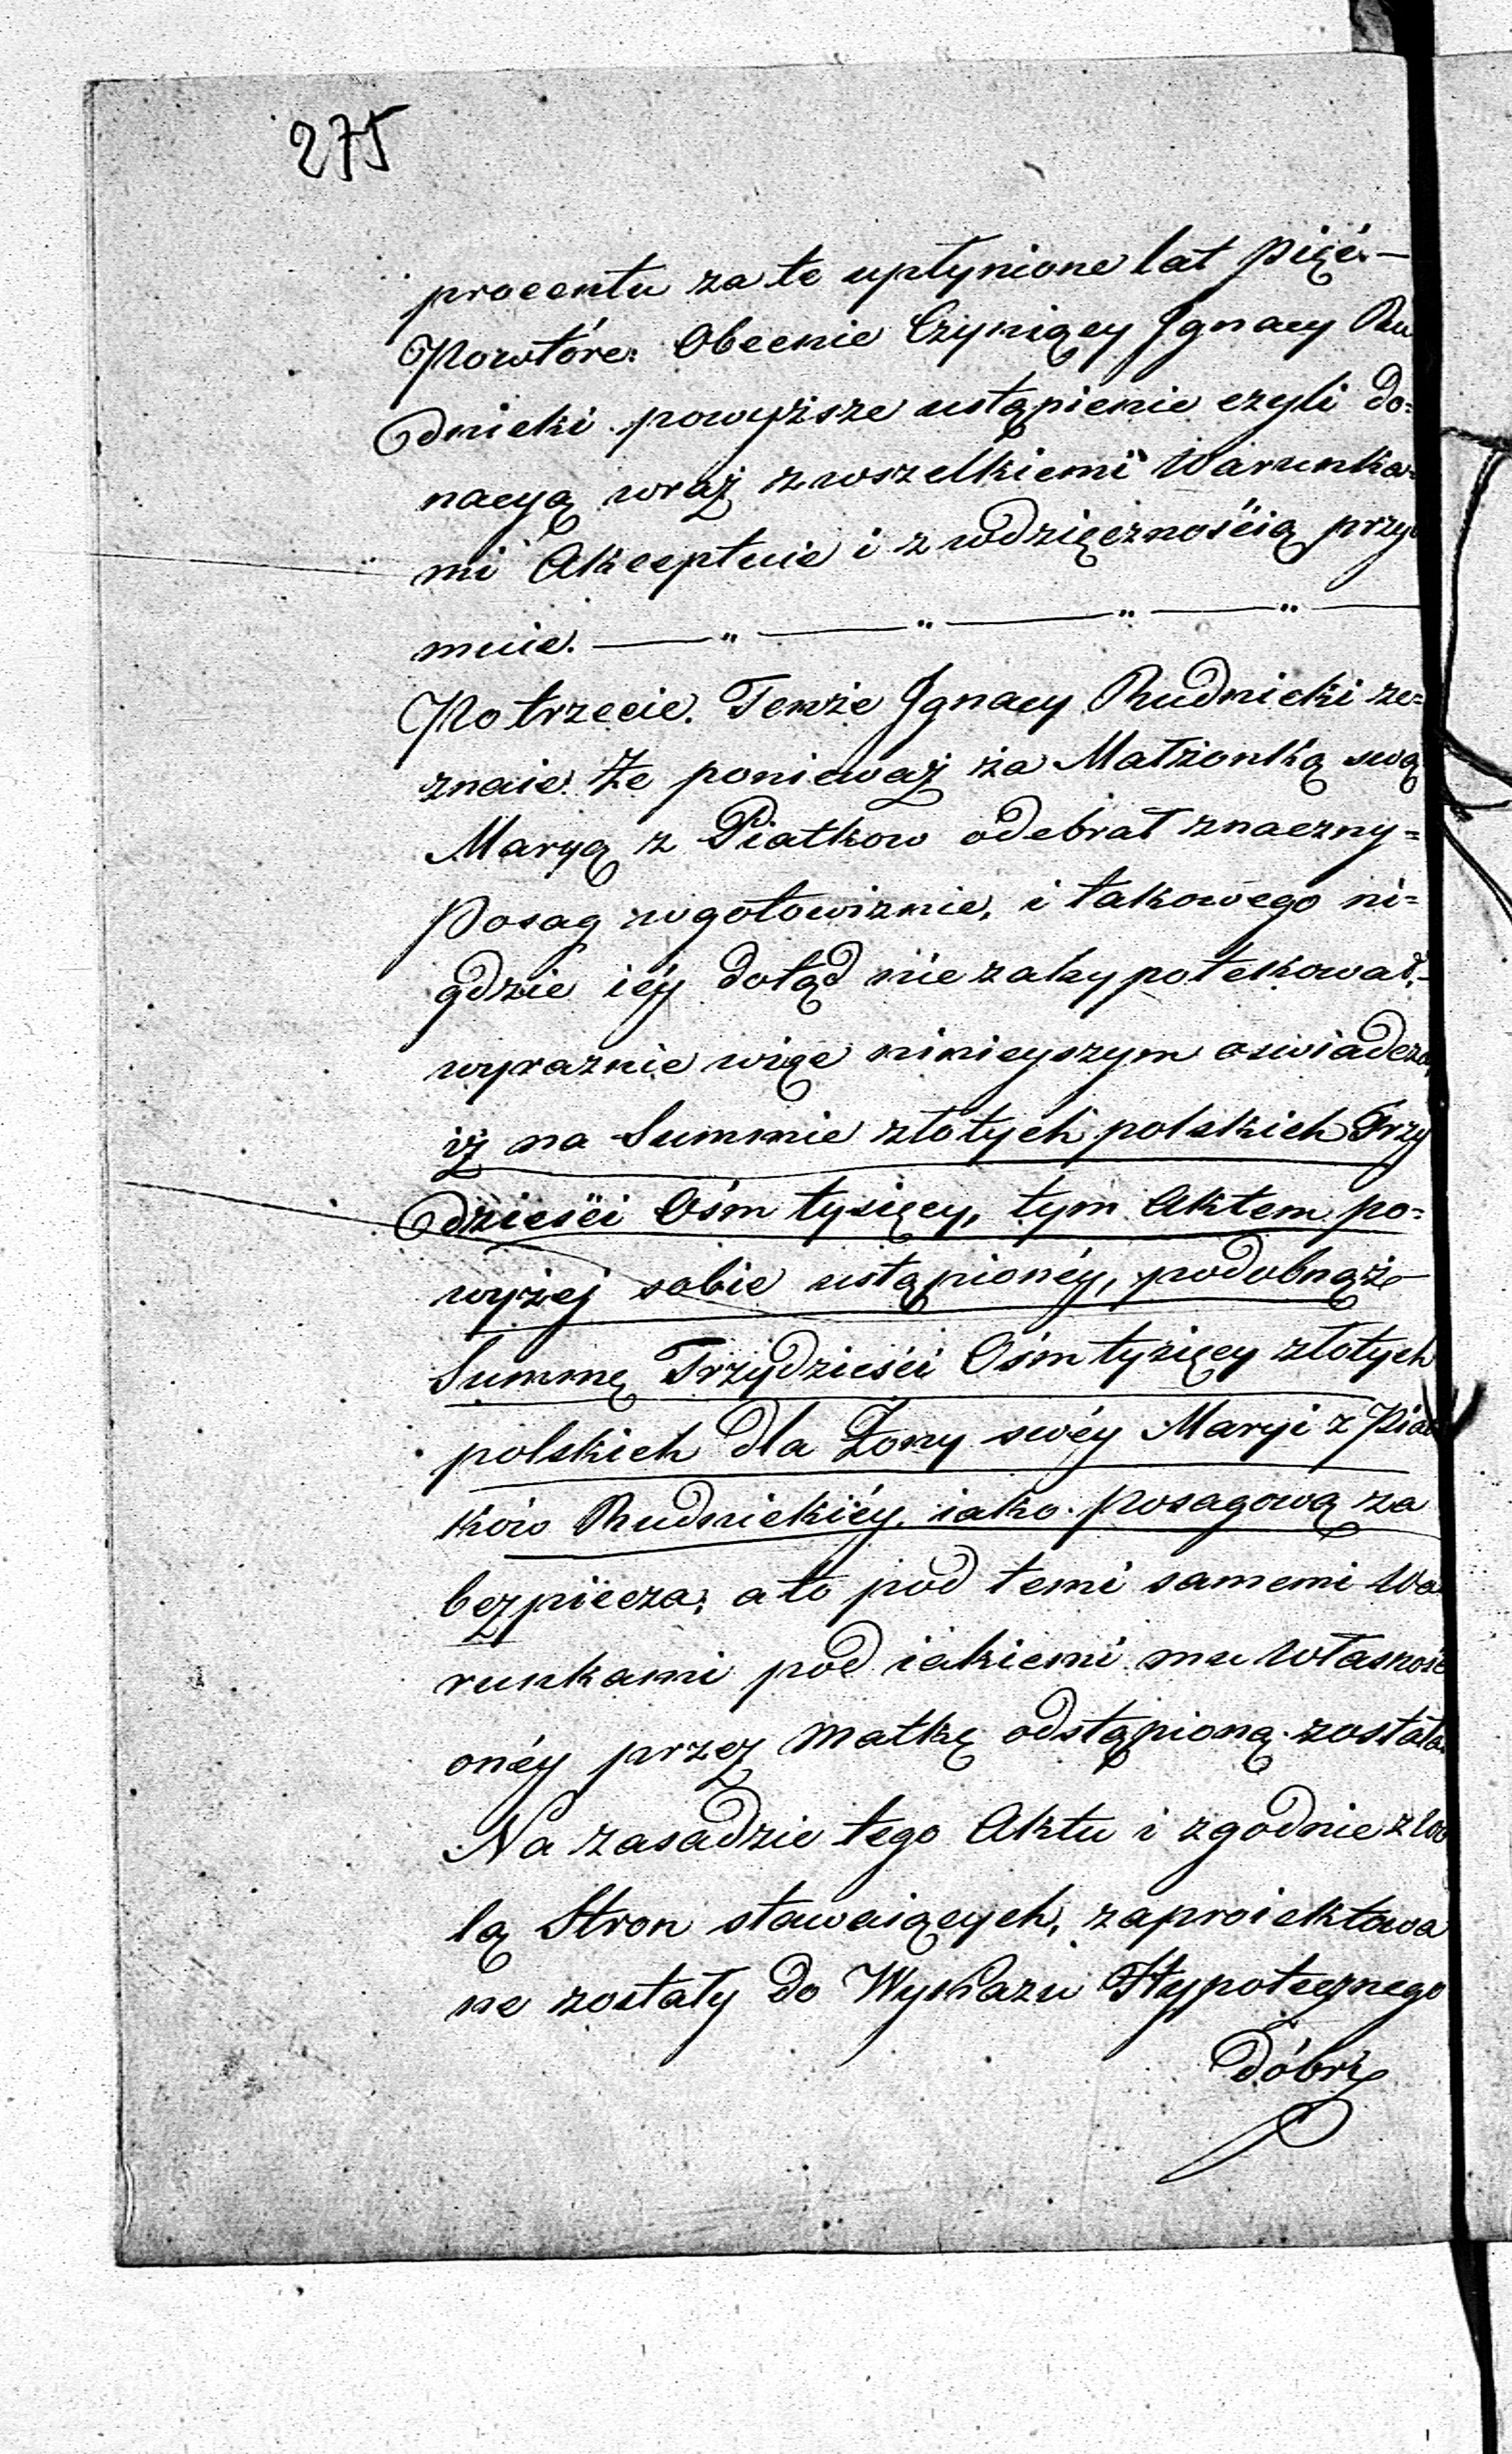 275
procentu za te upłynione lat pięć. —
Powtóre. Obecnie Czyniący Ignacy Ru
dnicki powyższe ustąpienie czyli do=
nacyą wraz z wszelkiemi Warunka=
mi Akceptuie i z wdzięcznością przy
muie. — " — " — " — " —
Potrzecie. Tenże Ignacy Rudnicki ze=
znaie. Że ponieważ za Małżonką swą
Maryą z Piatkow odebrał znaczny=
Posag w gotowiznie, i takowego ni=
gdzie iéy dotąd nie zahypotekował,
wyraznie więc ninieyszym oswiadcza
iż na Summie złotych polskich Trzy
dzieści Ośm tysięcy, tym Aktem po=
wyżej sobie ustąpionéy, podobnąż
Summę Trzydzieści Ośm tysięcy złotych
polskich dla Żony swéy Maryi z Piat
ków Rudnickiéy, iako posagową za
bezpiecza; a to pod temi samemi Wa
runkami pod iakiemi mu Własność
onéy przez Matkę odstąpioną została.
Na zasadzie tego Aktu i zgodnie z wo
lą Stron stawaiących, zaproiektowa
ne zostały do Wykazu Hypotecznego
Dóbr